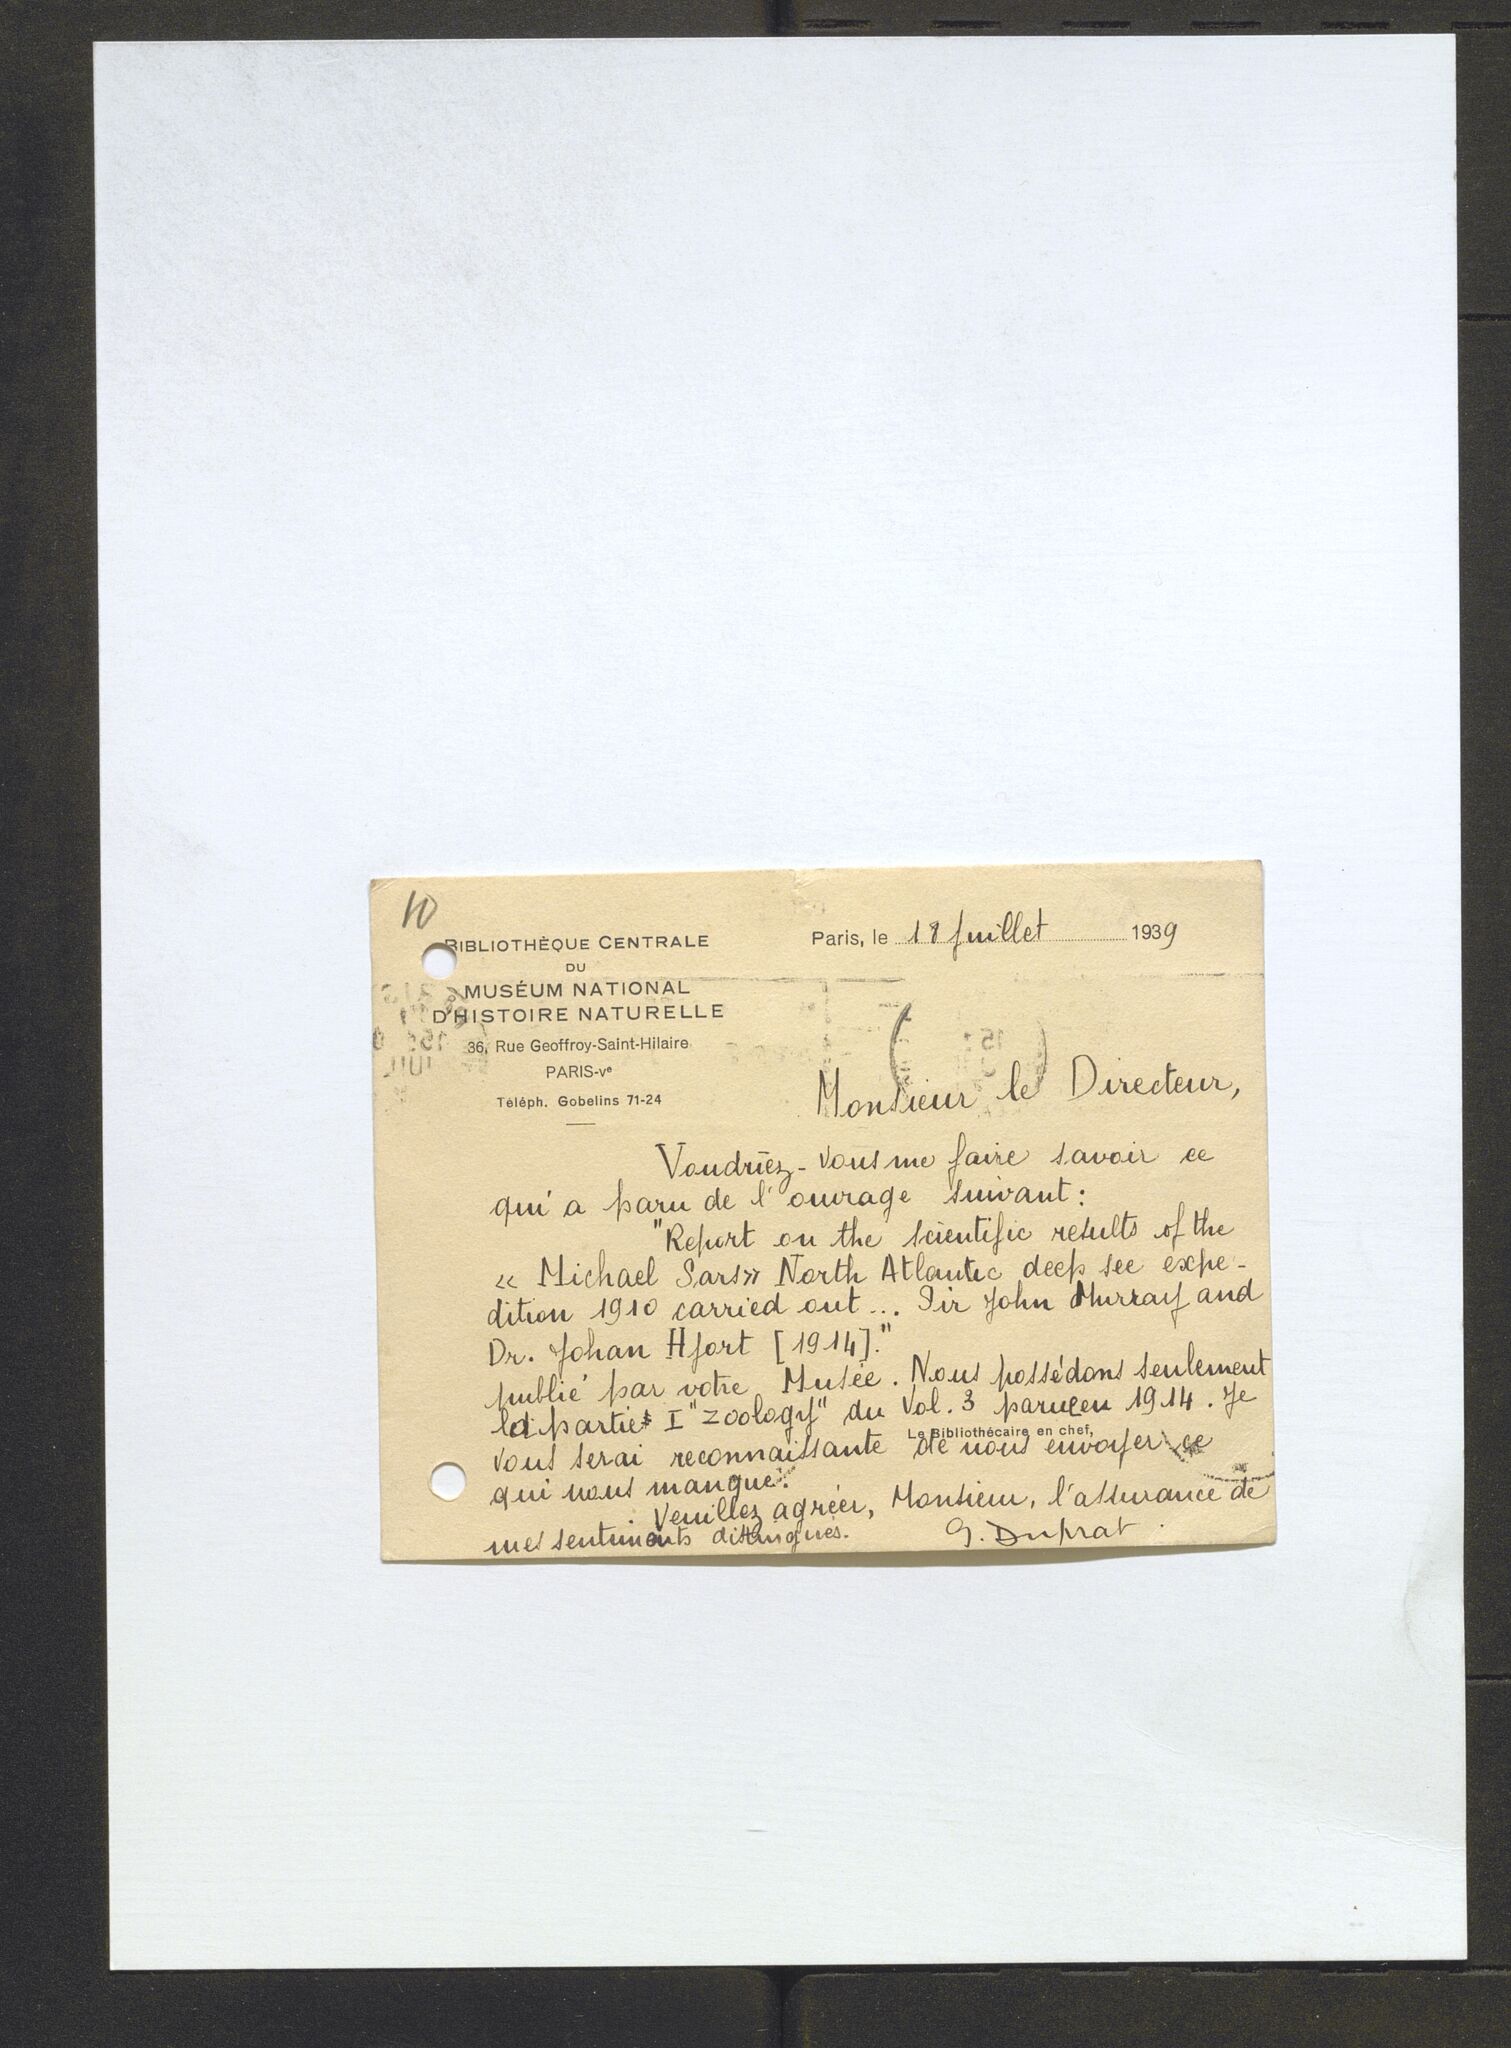 10
BIBLIOTHÈQUE CENTRALE
DU
MUSÉUM NATIONAL
D'HISTOIRE NATURELLE
36, Rue Geoffroy-Saint-Hilaire
PARIS-Vᵉ
Téléph. Gobelins 71-24
Paris, le 18 Juillet 1939
Monsieur le Directeur,
Voudriez-vous me faire savoir ce
qui a paru de l'ouvrage suivant:
"Report on the scientific results of the
« Michael Sars» North Atlantic deep see expe-
dition 1910 carried out... Sir John Murray and
Dr. Johan Hjort [1914]."
publié par votre Musée. Nous possédons seulement
la partie I "Zoology" du Vol. 3 parue en 1914. Je
Le Bibliothécaire en chef,
vous serai reconnaissante de nous envoyer ce
qui nous manque.
Veuillez agréer, Monsieur, l'assurance de
mes sentiments distingués. G. Duprat